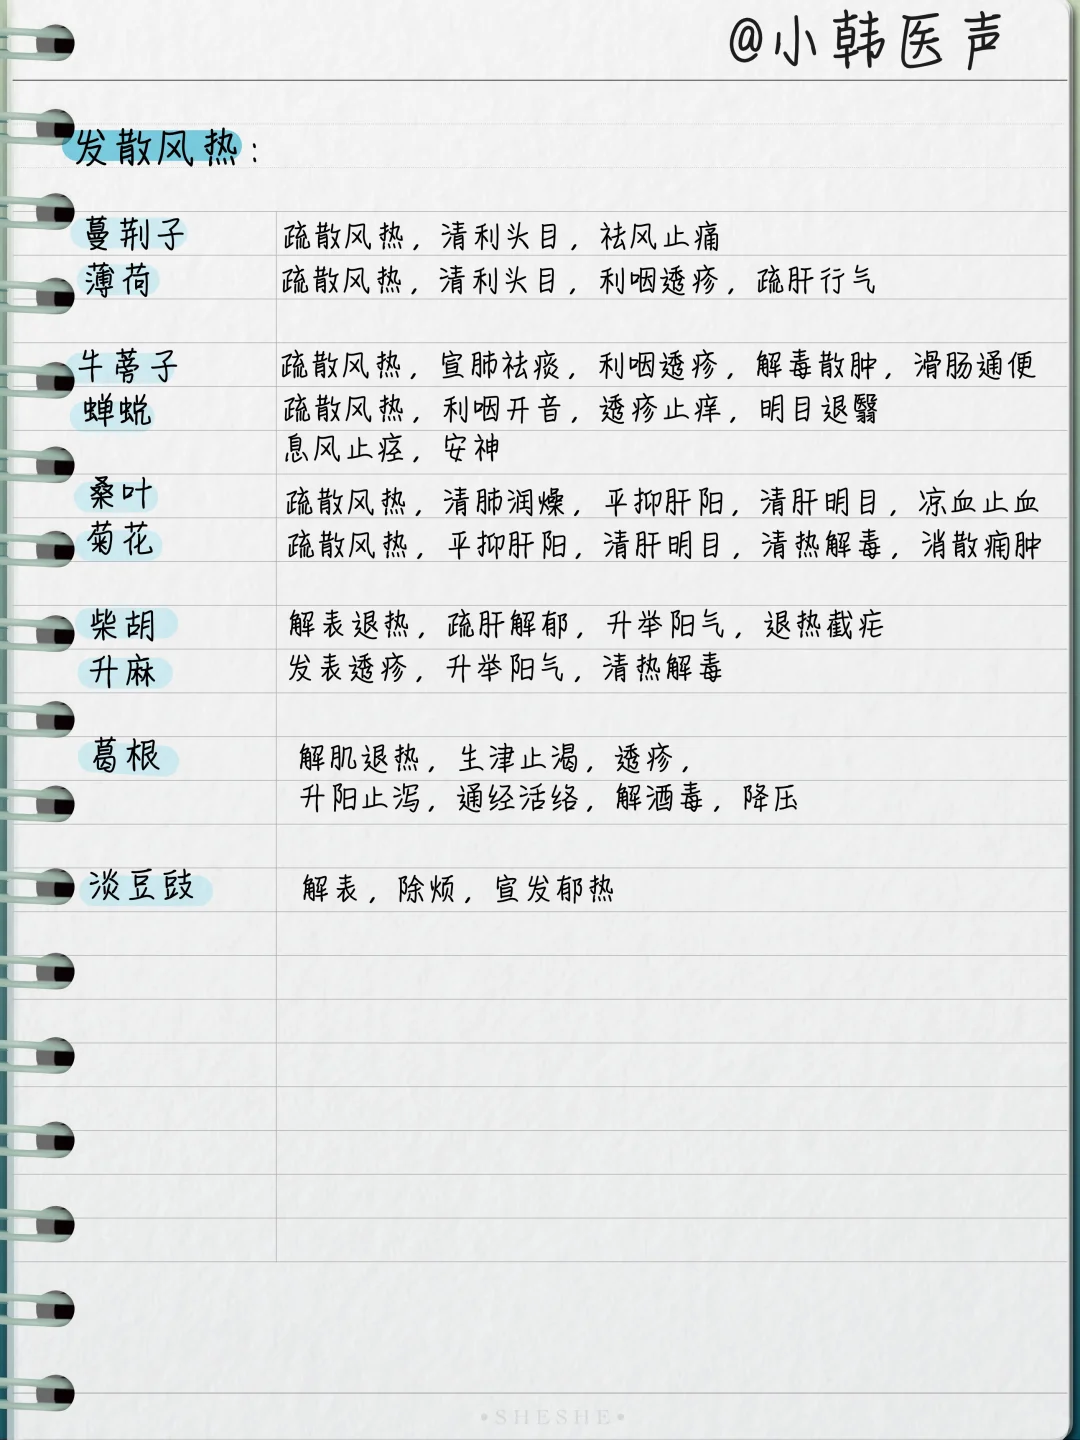 @小韩医声
发散风热：
蔓荆子 疏散风热，清利头目，祛风止痛
薄荷 疏散风热，清利头目，利咽透疹，疏肝行气
牛蒡子 疏散风热，宣肺祛痰，利咽透疹，解毒散肿，滑肠通便
蝉蜕 疏散风热，利咽开音，透疹止痒，明目退翳
息风止痉，安神
桑叶 疏散风热，清肺润燥，平抑肝阳，清肝明目，凉血止血
菊花 疏散风热，平抑肝阳，清肝明目，清热解毒，消散痈肿
柴胡 解表退热，疏肝解郁，升举阳气，退热截疟
升麻 发表透疹，升举阳气，清热解毒
葛根 解肌退热，生津止渴，透疹，
升阳止泻，通经活络，解酒毒，降压
淡豆豉 解表，除烦，宣发郁热
•SHESHE•